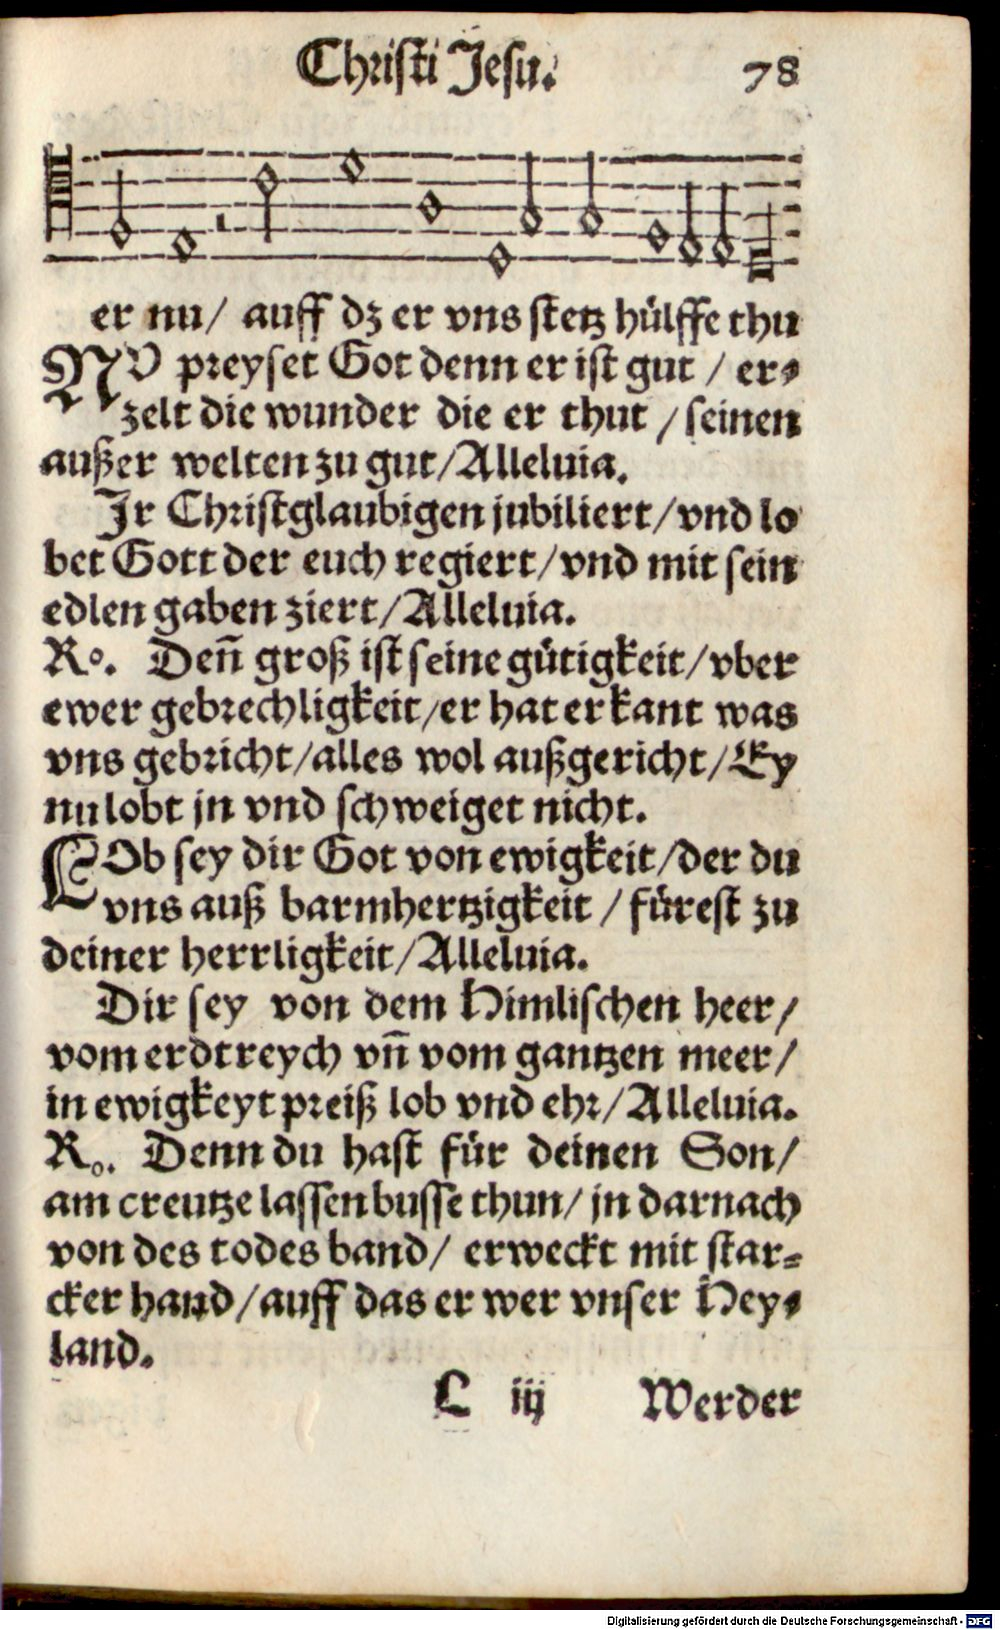 Christi Jesu. 78
er nu/ auff dz er vns stetz hülffe thu
NU preyset Got denn er ist gut / er⸗
zelt die wunder die er thut / seinen
außer welten zu gut/Alleluia.
Jr Christglaubigen jubiliert/vnd lo
bet Gott der euch regiert/vnd mit sein
edlen gaben ziert/Alleluia.
Ro. Deñ groß ist seine gütigkeit/vber
ewer gebrechligkeit/er hat erkant was
vns gebricht/alles wol außgericht/Ey
nu lobt jn vnd schweiget nicht.
LOb sey dir Got von ewigkeit/der du
vns auß barmhertzigkeit / fürest zu
deiner herrligkeit/Alleluia.
Dir sey von dem Himlischen heer/
vom erdtreych vñ vom gantzen meer/
in ewigkeyt preiß lob vnd ehr/Alleluia.
Ro. Denn du hast für deinen Son/
am creutze lassen busse thun/ jn darnach
von des todes band/ erweckt mit star⸗
cker hand/auff das er wer vnser Hey⸗
land.
L iij Werder
Digitalisierung gefördert durch die Deutsche Forschungsgemeinschaft - DFG